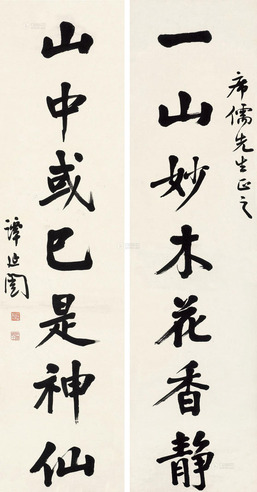 席儒先生正之
一山妙木花香静
山中或已是神仙
谭延闿